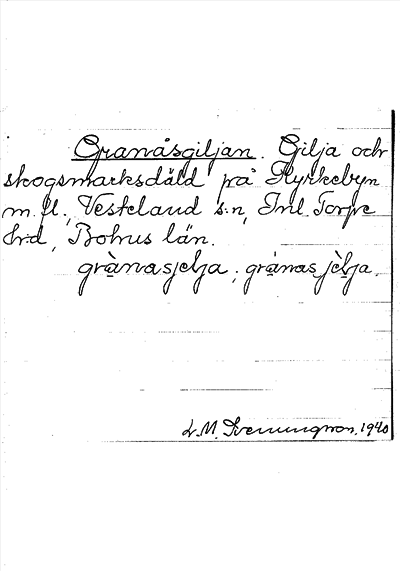 Granåsgiljan. Gilja och
skogsmarksdäld på Hyrkebyn
m.fl., Vesteland s:n, Inl. Torpe
hrd, Bohus län.
grànasjelja, grånas jèlja.
L.M. Svenungsson. 1940